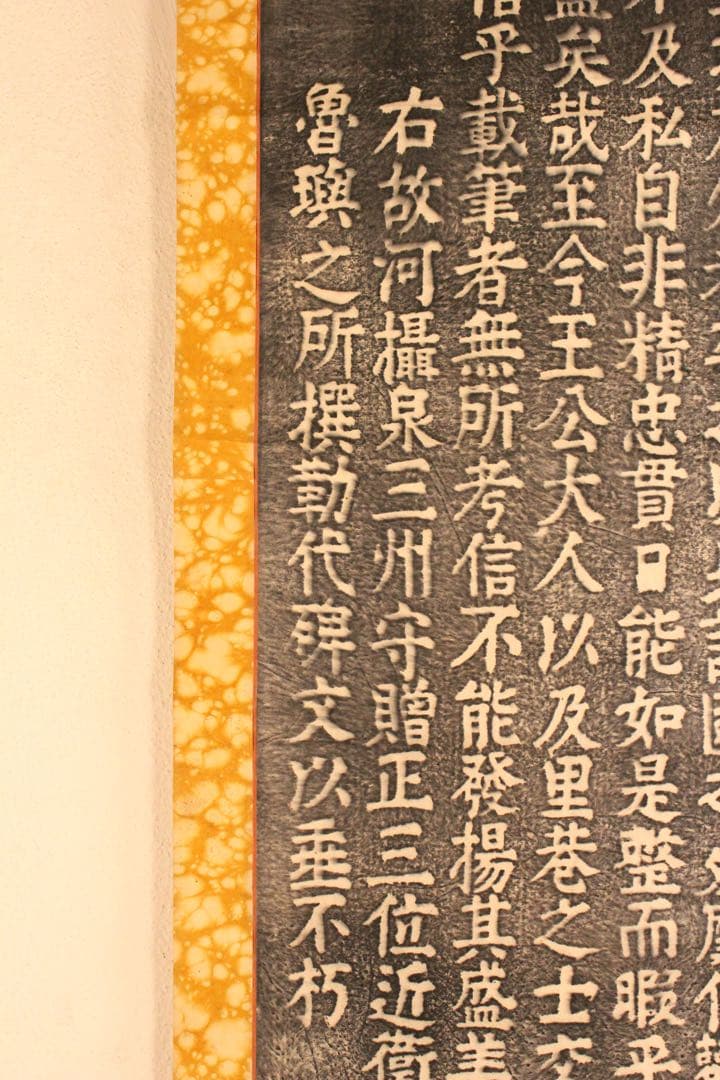 不及私自非精忠貫日能如是整而暇乎
盛矣哉至今王公大人以及里巷之士交
惜乎載筆者無所考信不能發揚其盛美
右故河攝泉三州守贈正三位近衛
魯璵之所撰勒代碑文以垂不朽